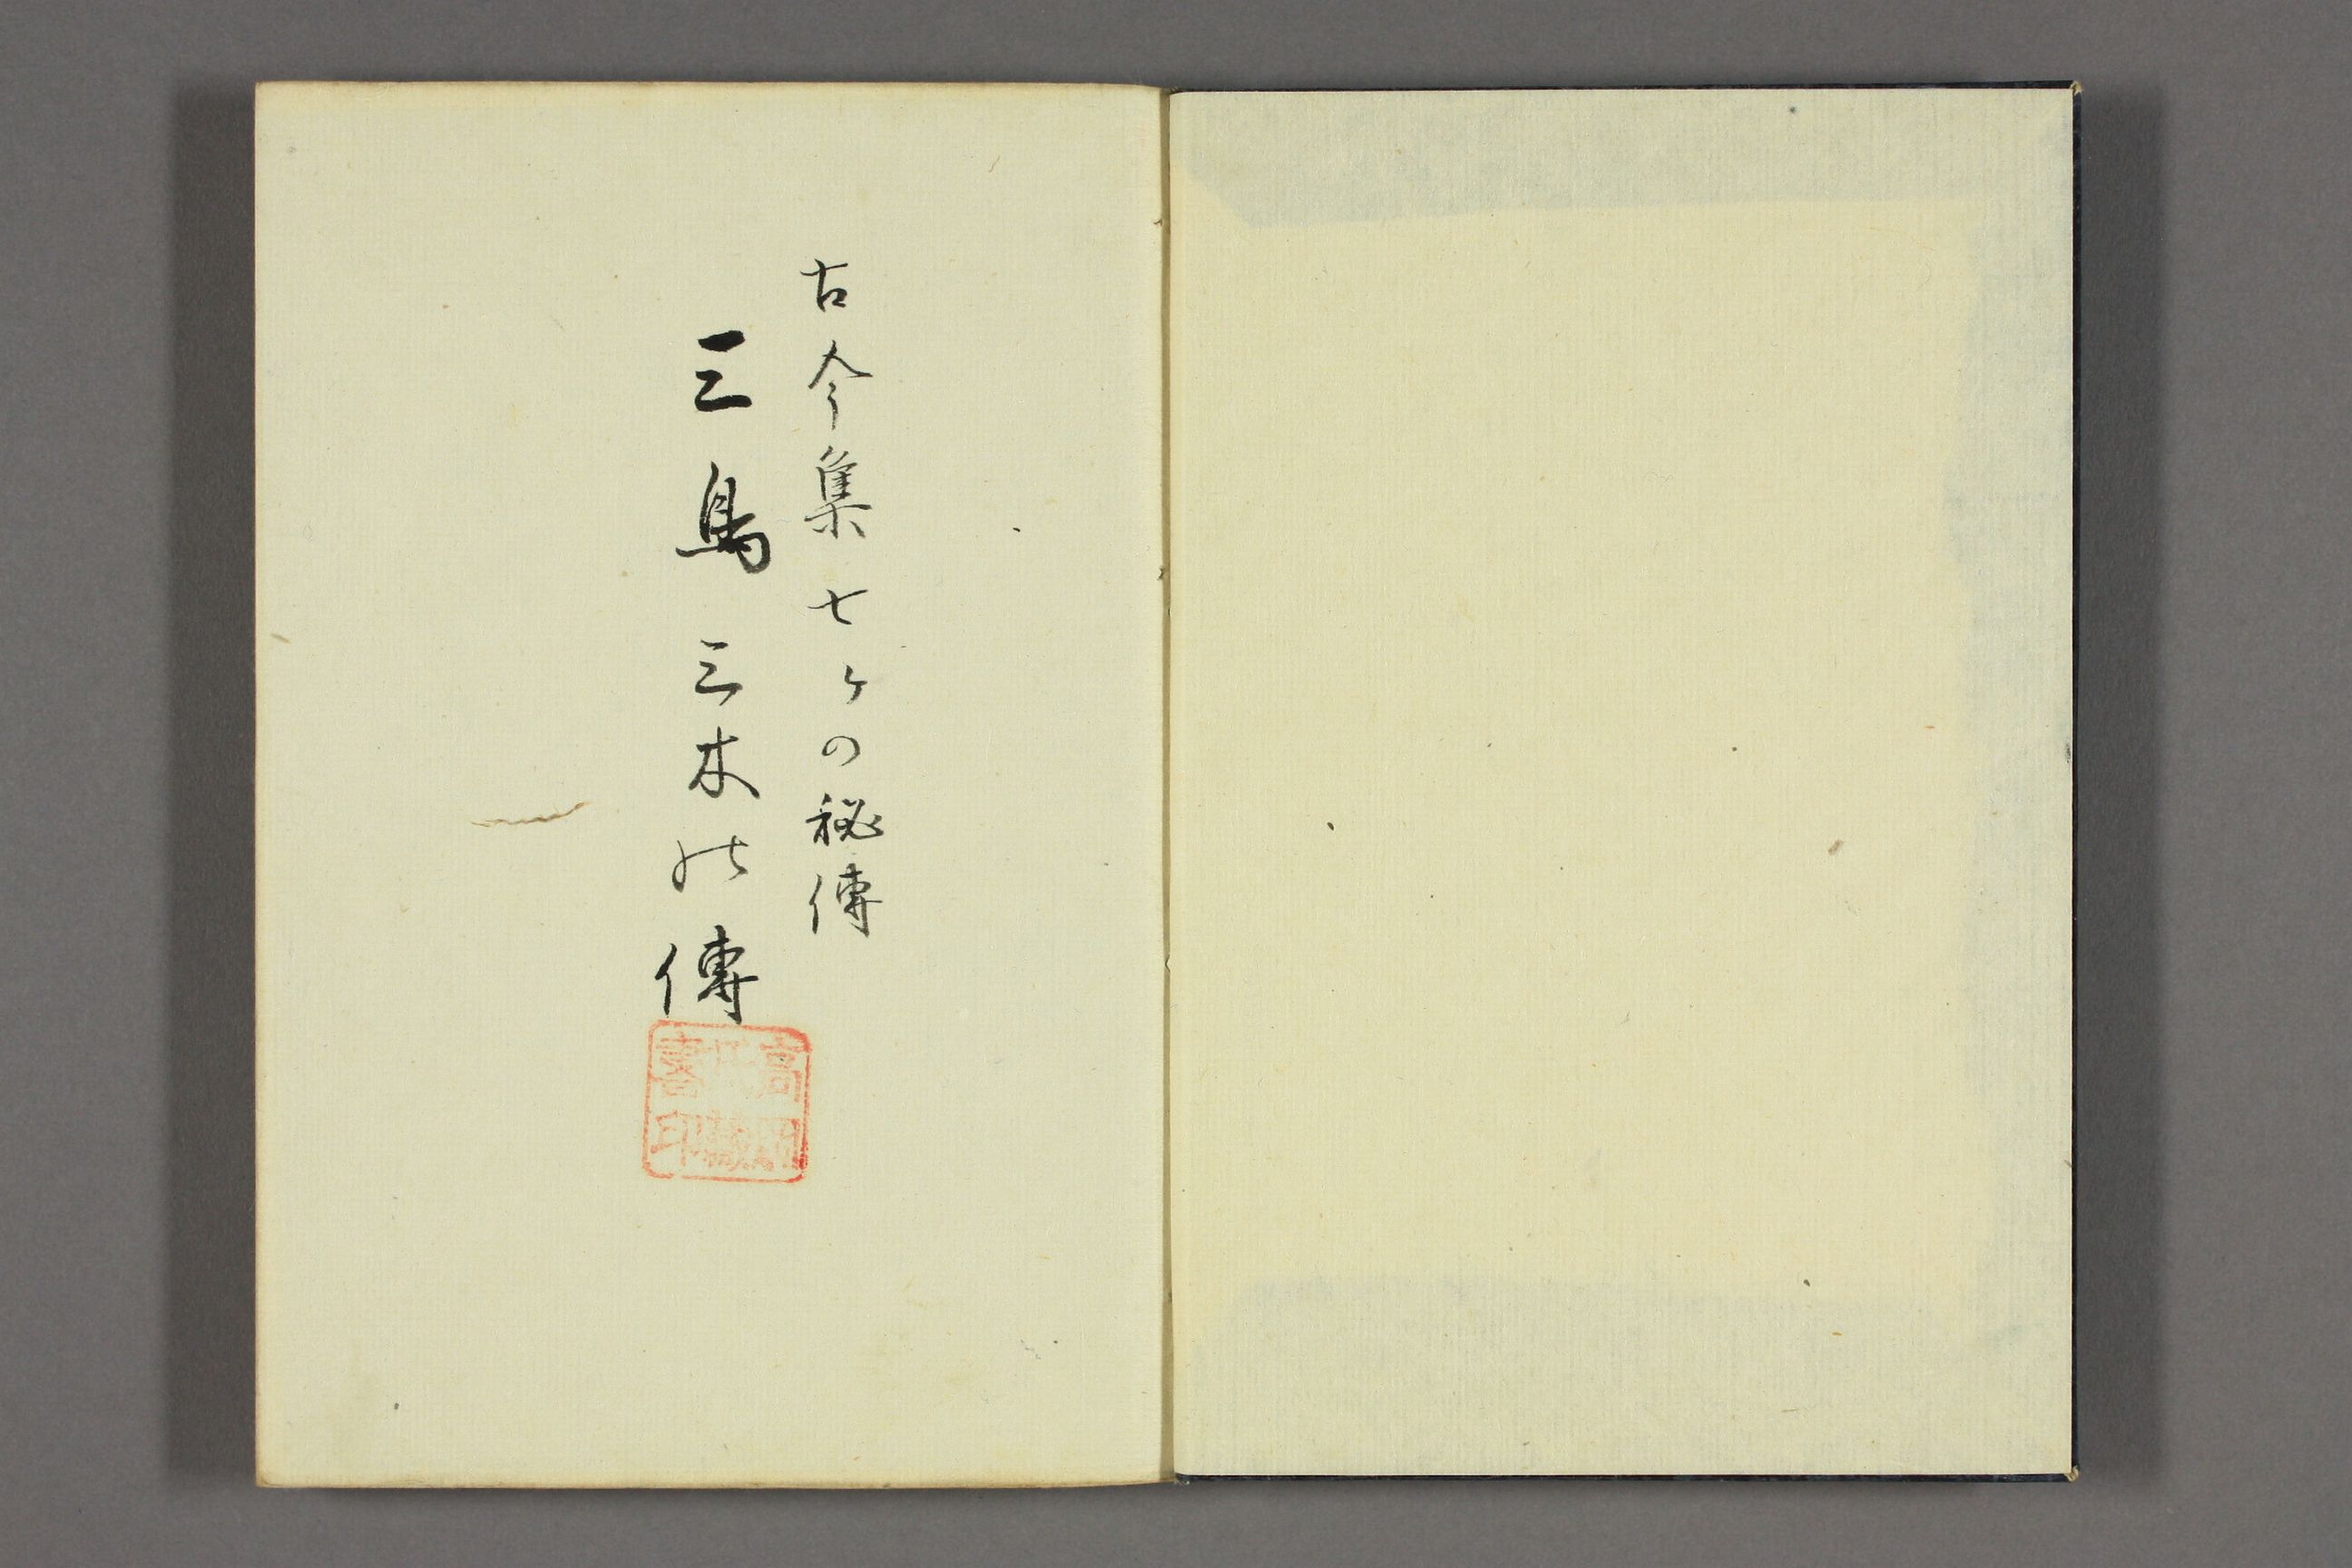 古今集七ヶの秘傳
三鳥三木の傳
高岡氏藏書印